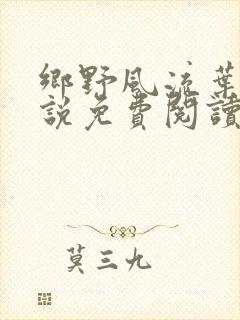 鄉野風流葉
說免費閱讀
莫三九